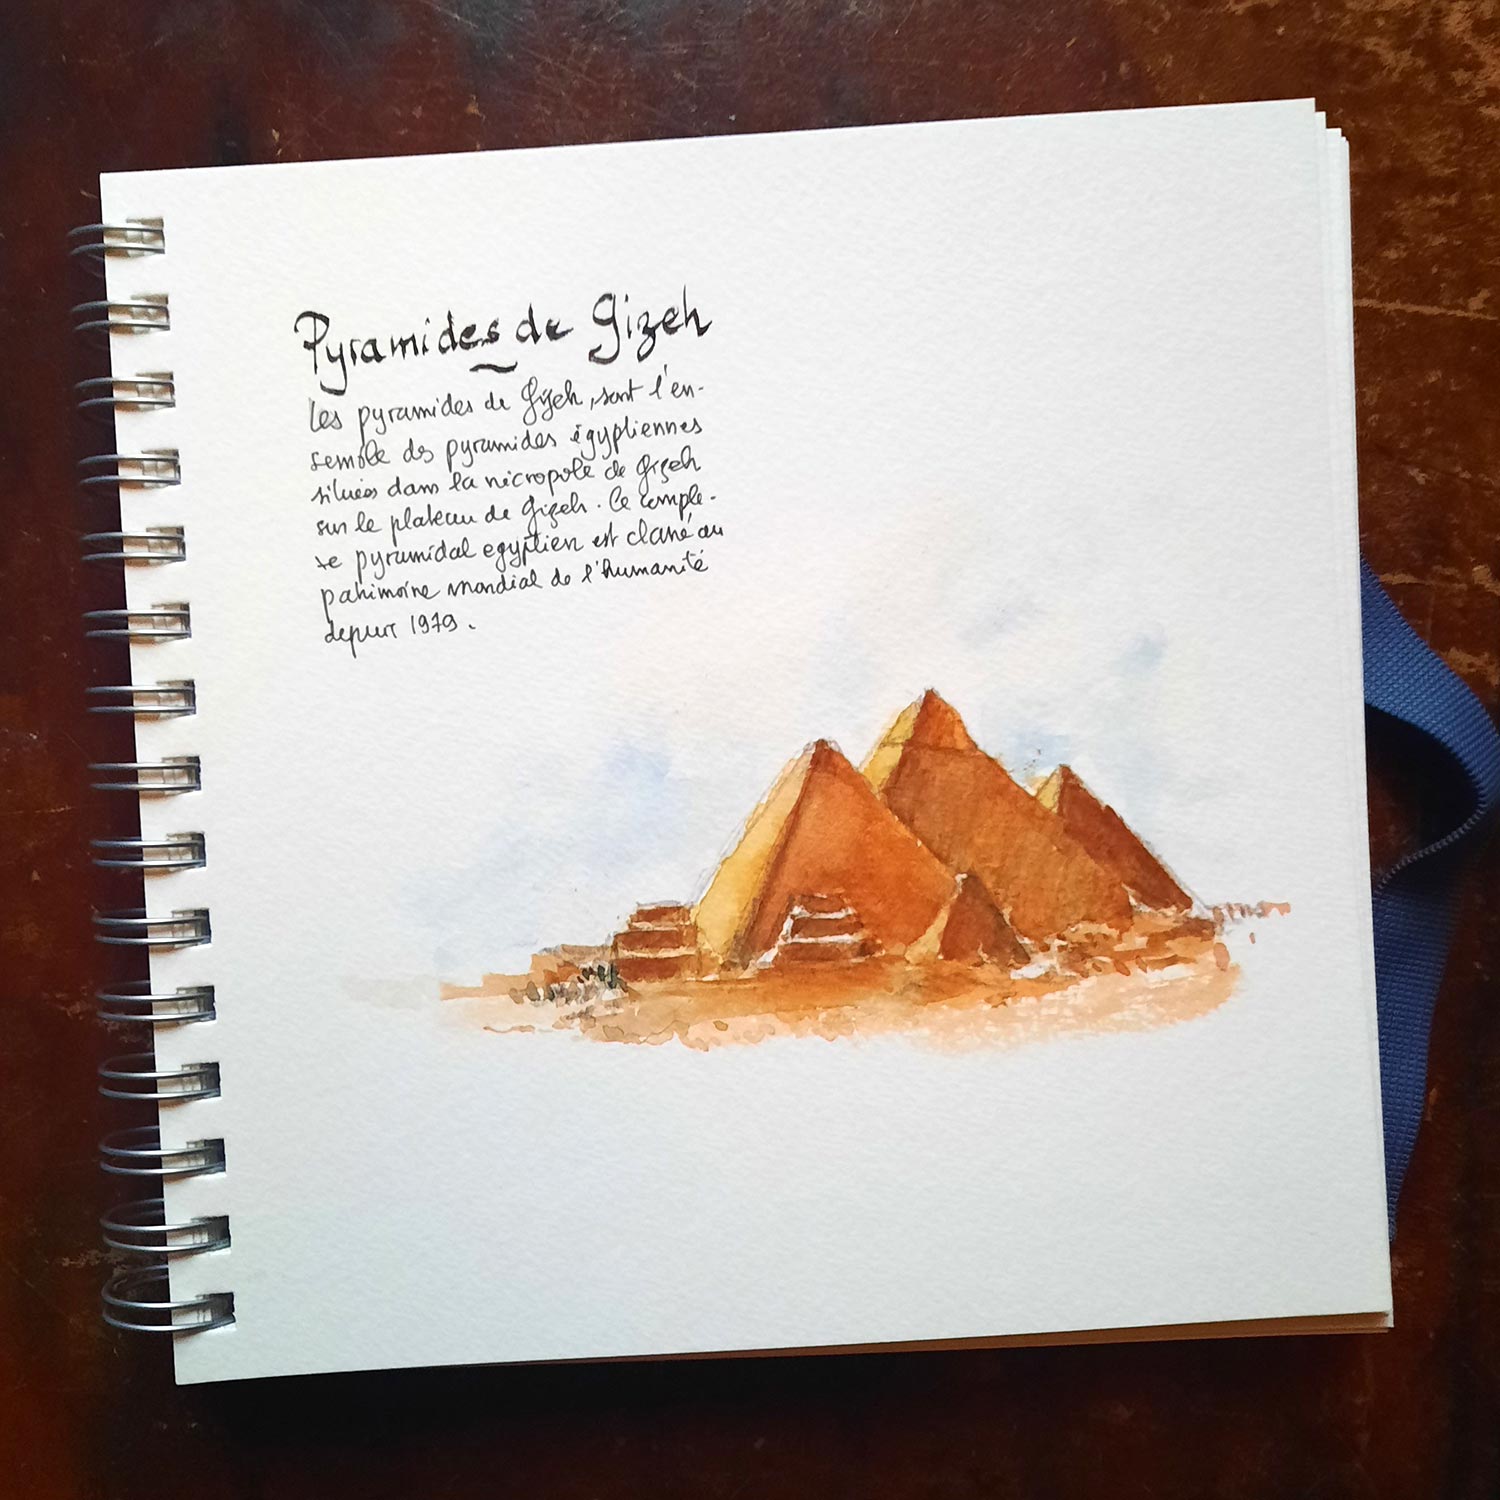 Pyramides de Gizeh
Les pyramides de Gizeh, sont l'en-
semble des pyramides égyptiennes
situées dans la nécropole de Gizeh
sur le plateau de Gizeh. Ce comple-
xe pyramidal egyptien est classé au
patrimoine mondial de l'humanité
depuis 1979.